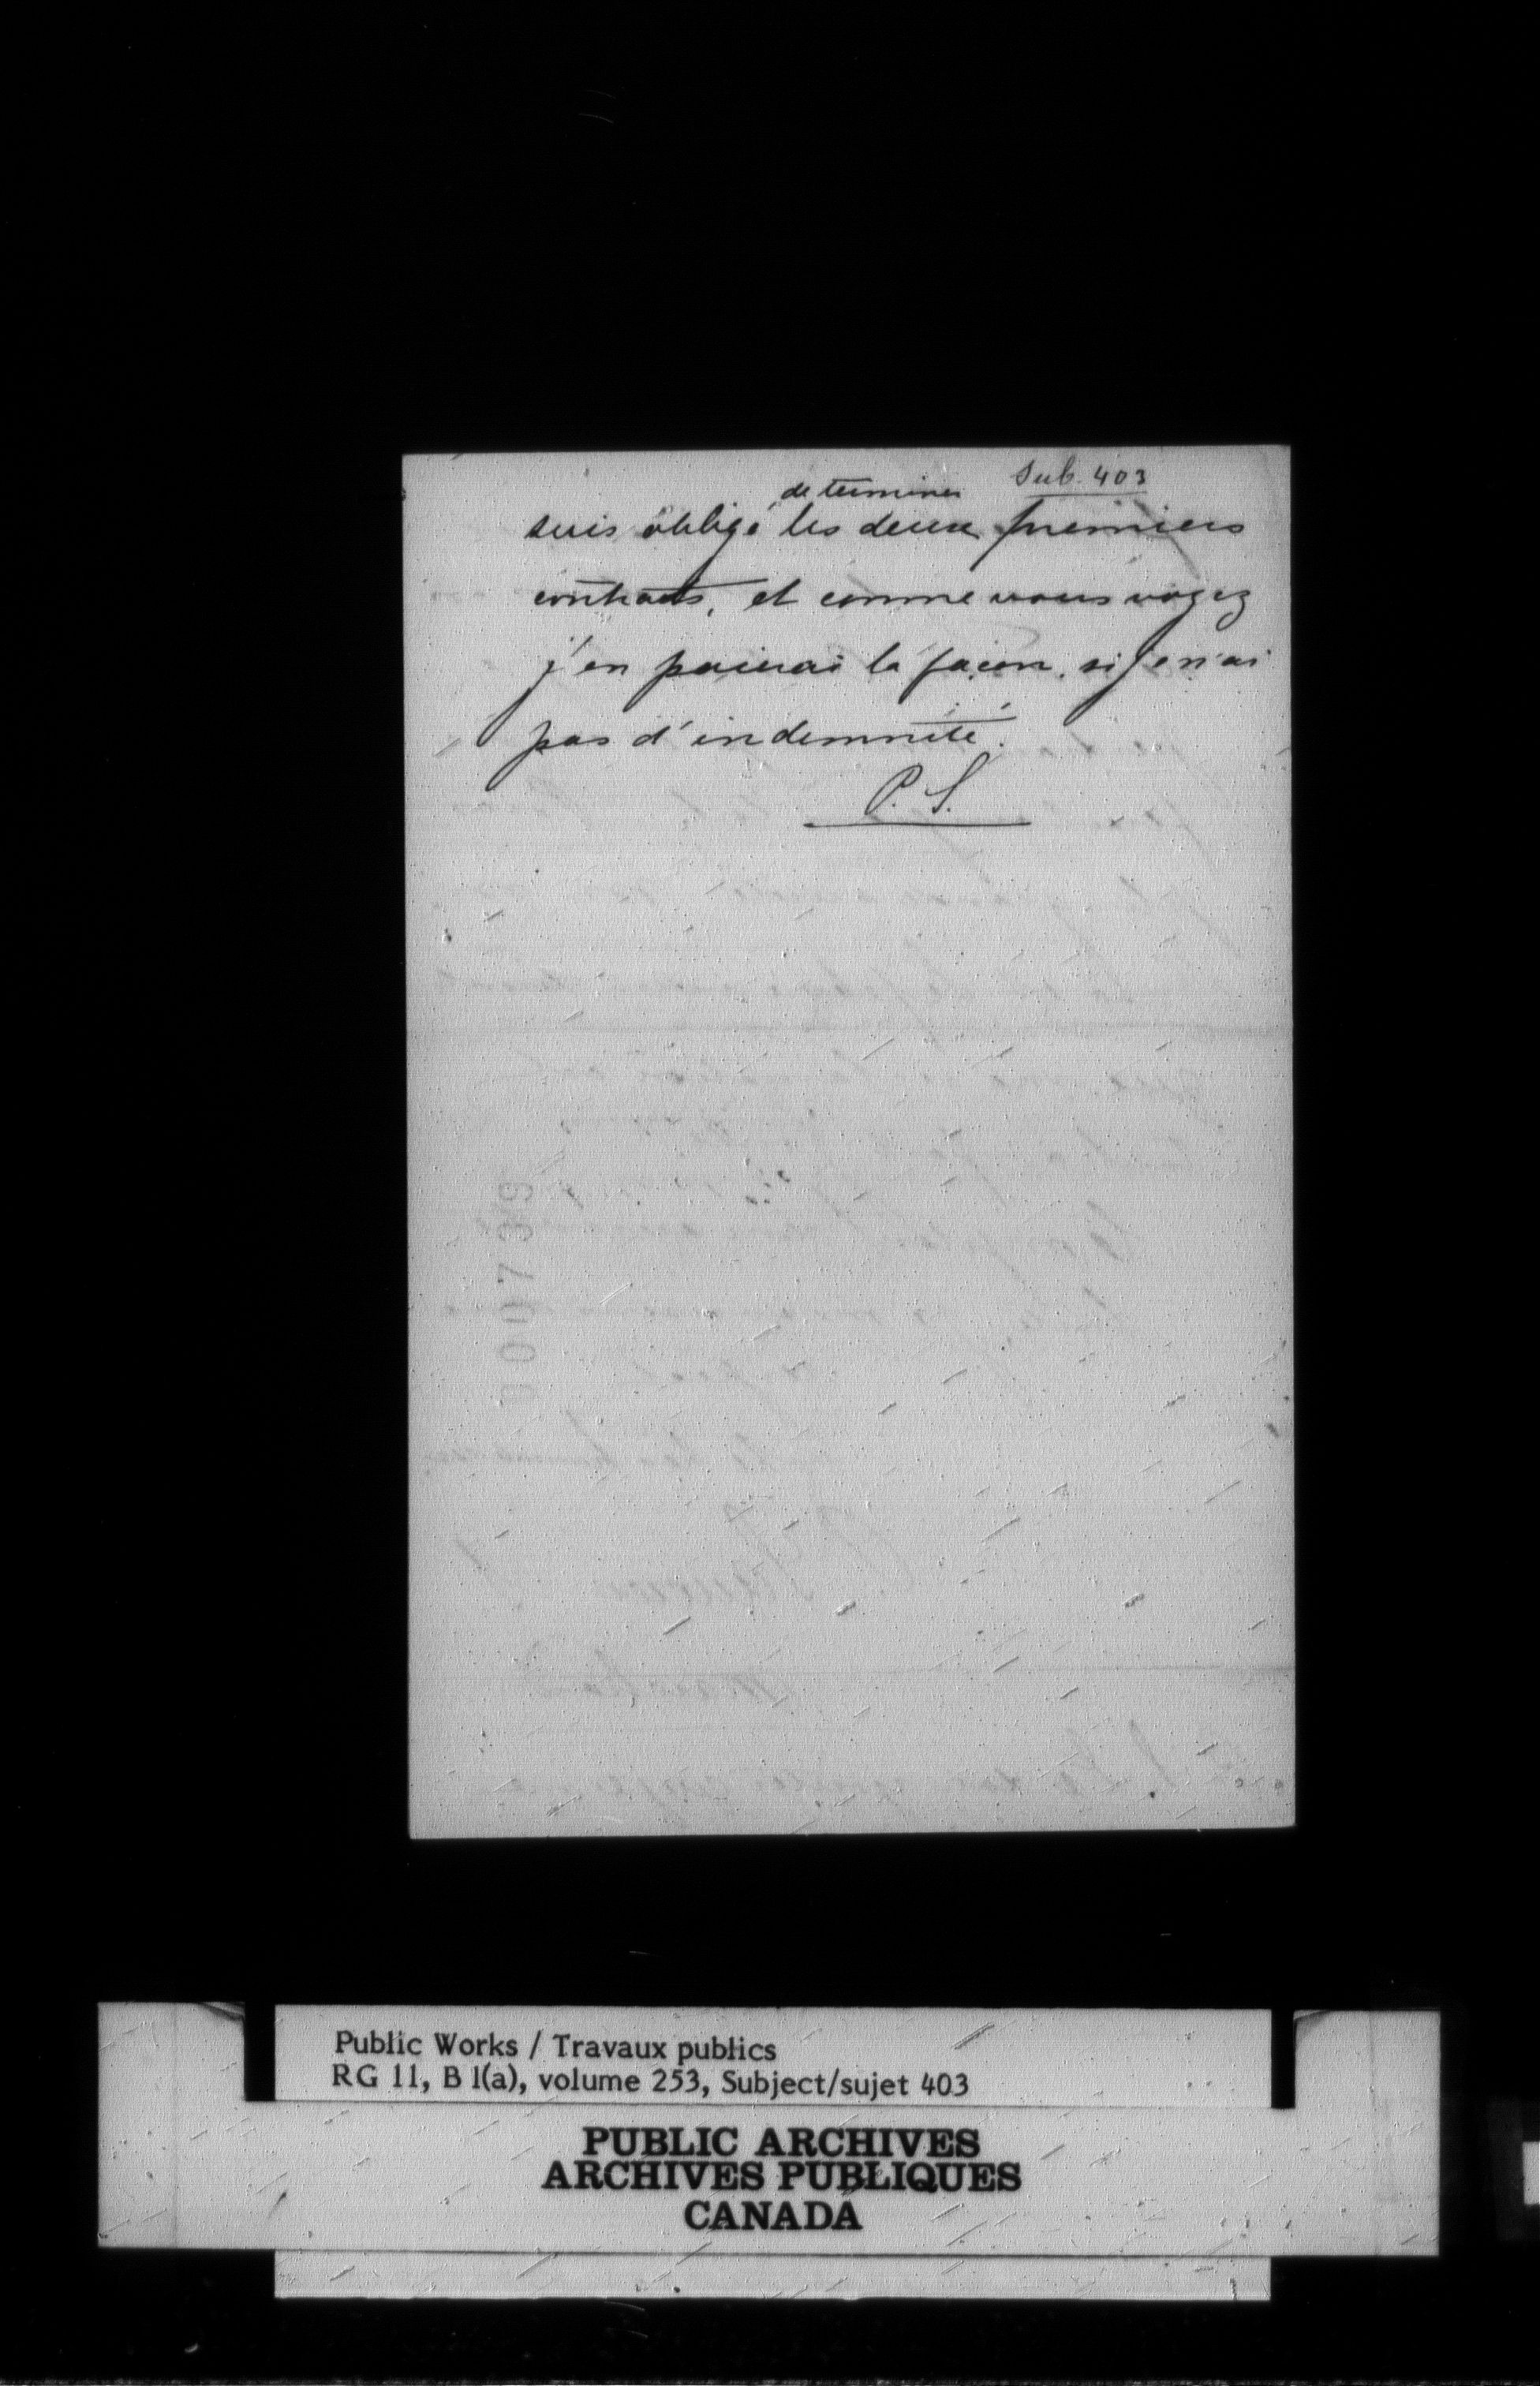 Sub. 403
de terminer
suis obligé les deux premiers
contrats, et comme vous voyez
j'en paierai la façon, si je n'ai
pas d'indemnité.
P. S.
000739
Public Works / Travaux publics
RG 11, B 1(a), volume 253, Subject/sujet 403
PUBLIC ARCHIVES
ARCHIVES PUBLIQUES
CANADA